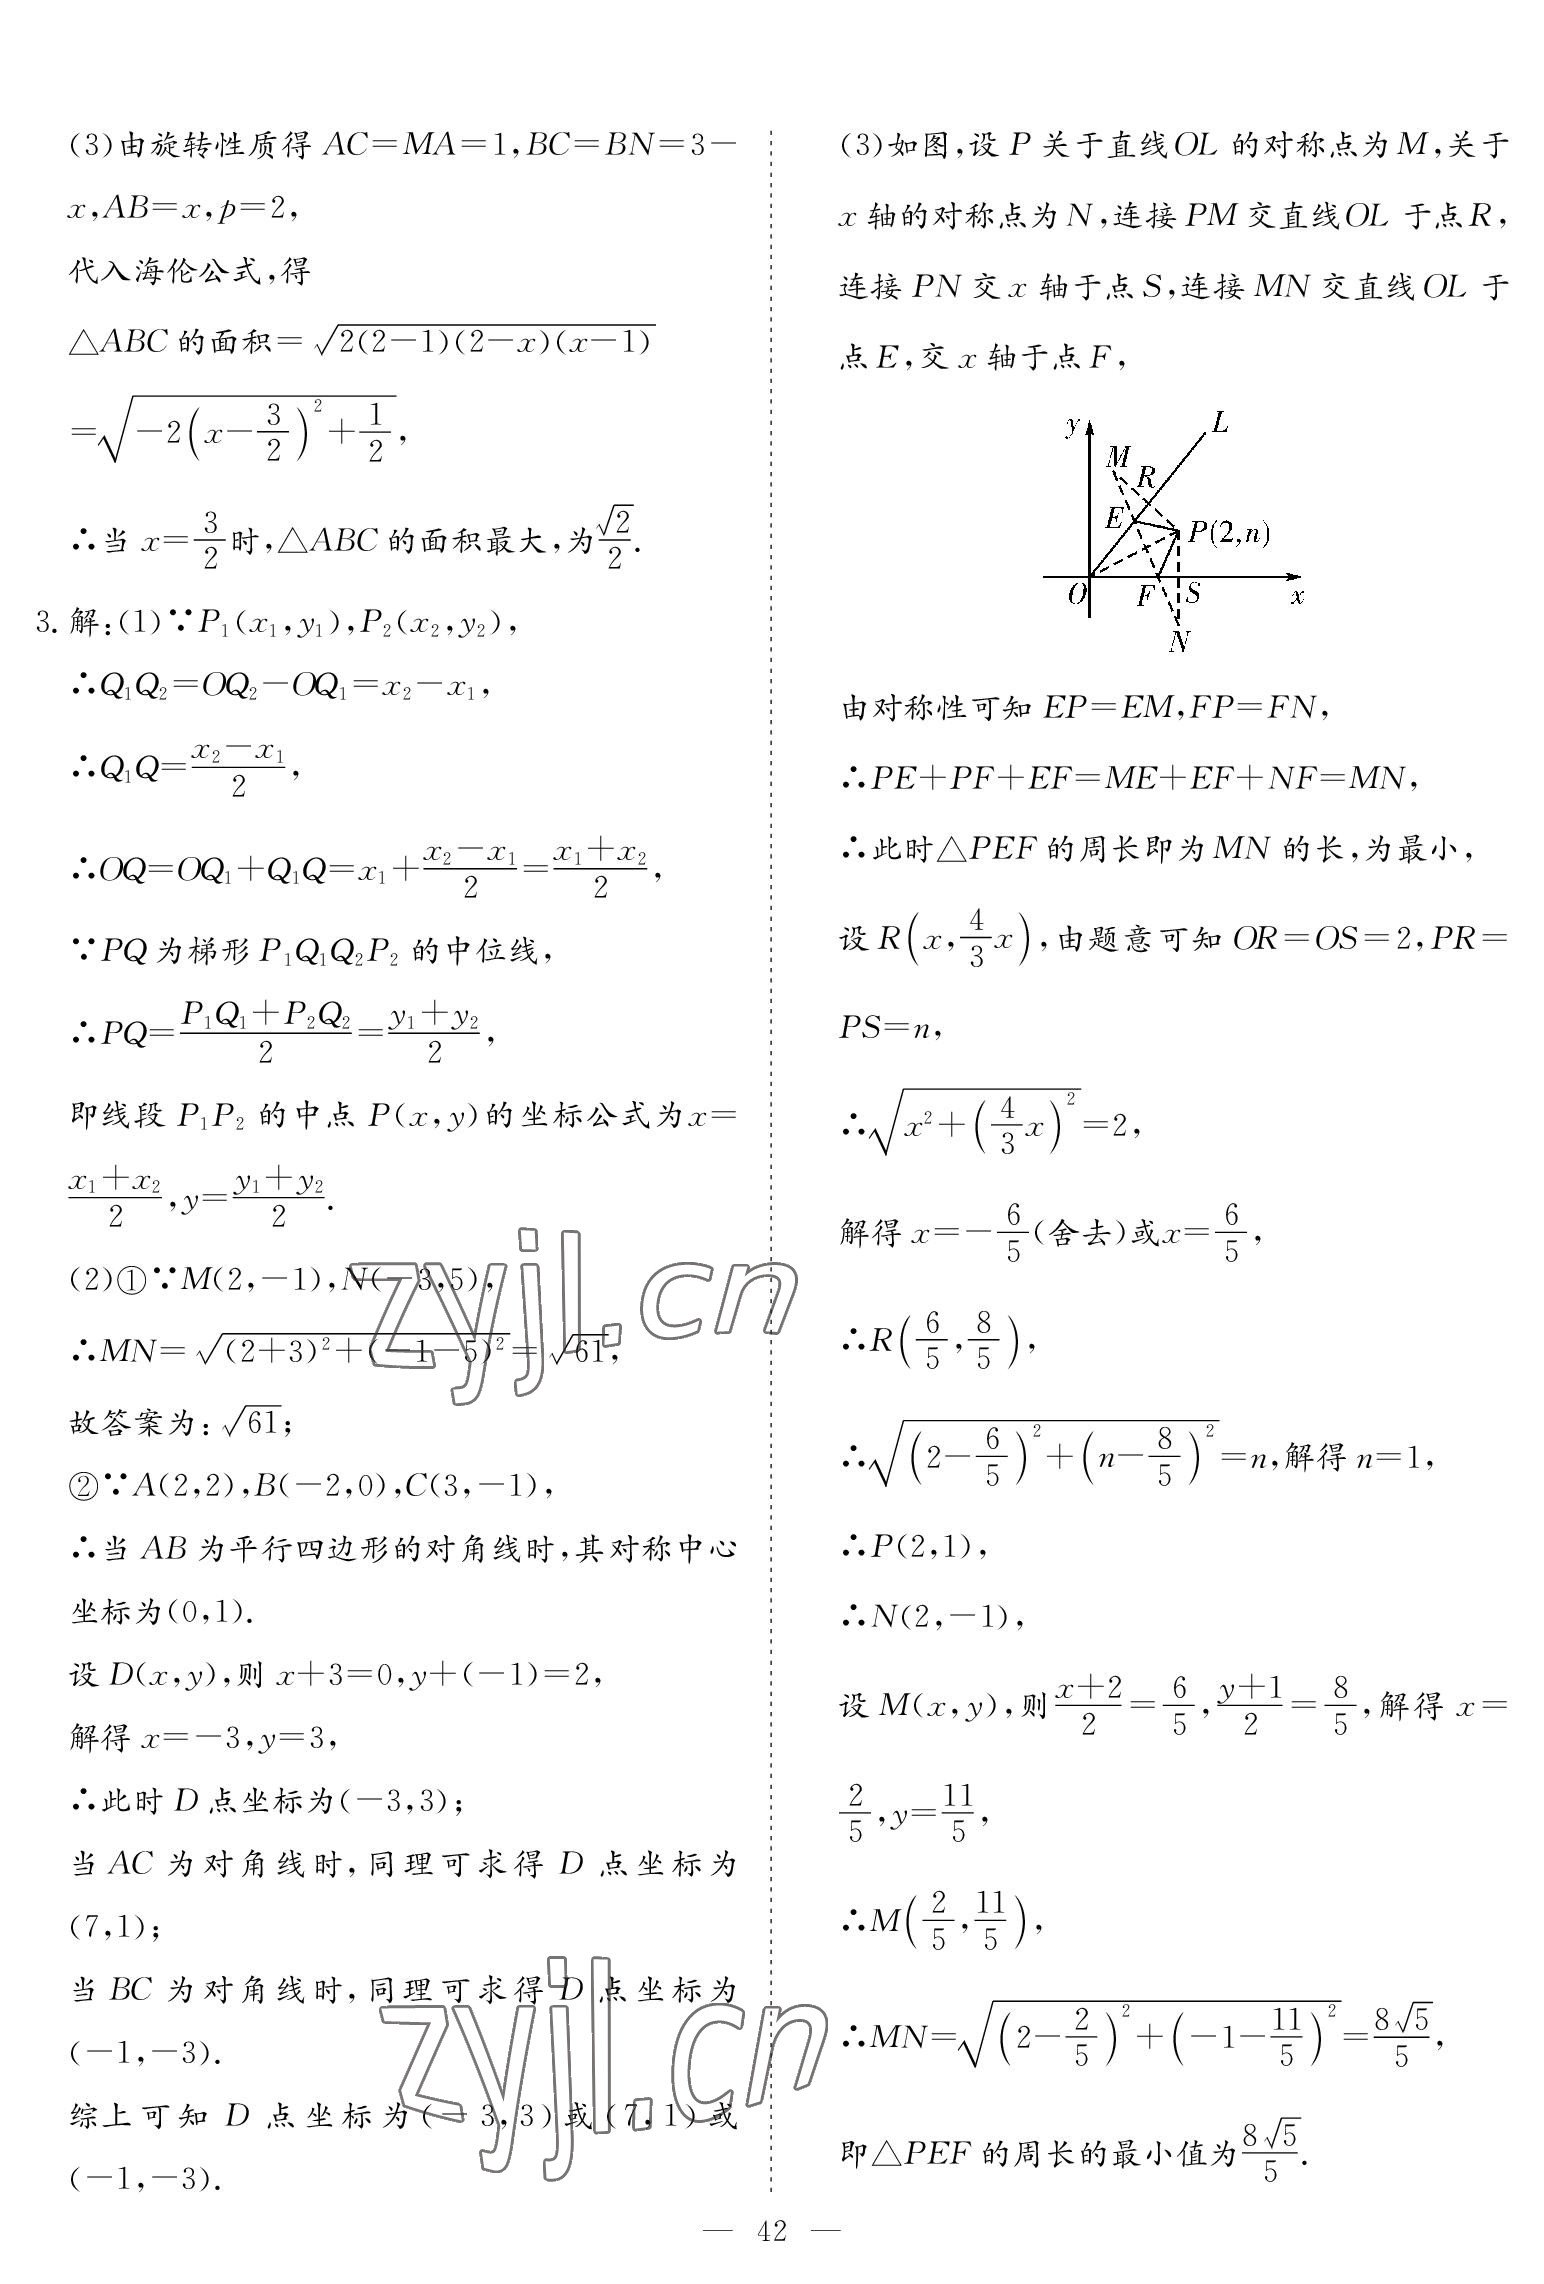 (3)由旋转性质得 AC=MA=1,BC=BN=3-
x,AB=x,p=2,
代入海伦公式,得
△ABC 的面积=√(2(2-1)(2-x)(x-1))
=√(-2(x-3/2)²+1/2),
∴当 x=3/2时,△ABC 的面积最大,为√2/2.
3. 解:(1)∵P₁(x₁,y₁),P₂(x₂,y₂),
∴Q₁Q₂=OQ₂-OQ₁=x₂-x₁,
∴Q₁Q=(x₂-x₁)/2,
∴OQ=OQ₁+Q₁Q=x₁+(x₂-x₁)/2=(x₁+x₂)/2,
∵PQ 为梯形 P₁Q₁Q₂P₂ 的中位线,
∴PQ=(P₁Q₁+P₂Q₂)/2=(y₁+y₂)/2,
即线段 P₁P₂ 的中点 P(x,y)的坐标公式为x=
(x₁+x₂)/2,y=(y₁+y₂)/2.
(2)①∵M(2,-1),N(-3,5),
∴MN=√((2+3)²+(-1-5)²)=√61,
故答案为:√61;
②∵A(2,2),B(-2,0),C(3,-1),
∴当 AB 为平行四边形的对角线时,其对称中心
坐标为(0,1).
设 D(x,y),则 x+3=0,y+(-1)=2,
解得 x=-3,y=3,
∴此时 D 点坐标为(-3,3);
当 AC 为对角线时,同理可求得 D 点坐标为
(7,1);
当 BC 为对角线时,同理可求得 D 点坐标为
(-1,-3).
综上可知 D 点坐标为(-3,3)或(7,1)或
(-1,-3).
(3)如图,设 P 关于直线OL 的对称点为M,关于
x 轴的对称点为N,连接 PM 交直线OL 于点R,
连接 PN 交 x 轴于点S,连接 MN 交直线OL 于
点E,交 x 轴于点F,
y
L
M
R
E
P(2,n)
O
F
S
x
N
由对称性可知 EP=EM,FP=FN,
∴PE+PF+EF=ME+EF+NF=MN,
∴此时△PEF 的周长即为MN 的长,为最小,
设 R(x,4/3x),由题意可知 OR=OS=2,PR=
PS=n,
∴√(x²+(4/3x)²)=2,
解得 x=-6/5(舍去)或x=6/5,
∴R(6/5,8/5),
∴√((2-6/5)²+(n-8/5)²)=n,解得 n=1,
∴P(2,1),
∴N(2,-1),
设 M(x,y),则(x+2)/2=6/5,(y+1)/2=8/5,解得 x=
2/5,y=11/5,
∴M(2/5,11/5),
∴MN=√((2-2/5)²+(-1-11/5)²)=8√5/5,
即△PEF 的周长的最小值为8√5/5.
— 42 —
zyjl.cn
zyjl.cn